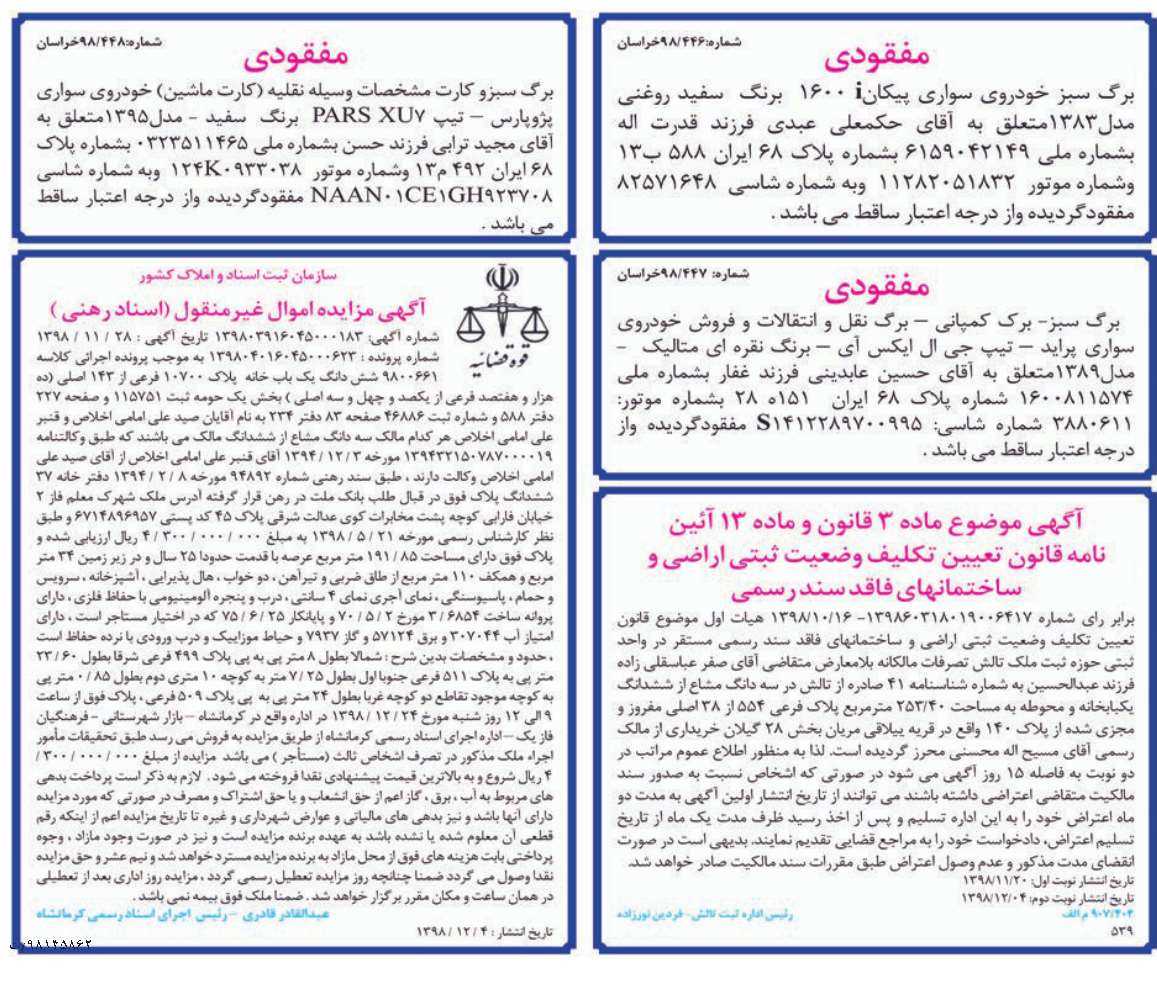 شماره:۹۸/۴۴۶خراسان
مفقودی
برگ سبز خودروی سواری پیکانi ۱۶۰۰ برنگ سفید روغنی
مدل۱۳۸۳متعلق به آقای حکمعلی عبدی فرزند قدرت اله
بشماره ملی ۶۱۵۹۰۴۲۱۴۹ بشماره پلاک ۶۸ ایران ۵۸۸ ب۱۳
وشماره موتور ۱۱۲۸۲۰۵۱۸۳۲ وبه شماره شاسی ۸۲۵۷۱۶۴۸
مفقودگردیده واز درجه اعتبار ساقط می باشد .
شماره: ۹۸/۴۴۷خراسان
مفقودی
برگ سبز- برک کمپانی – برگ نقل و انتقالات و فروش خودروی
سواری پراید – تیپ جی ال ایکس آی – برنگ نقره ای متالیک -
مدل۱۳۸۹متعلق به آقای حسین عابدینی فرزند غفار بشماره ملی
۱۶۰۰۸۱۱۵۷۴ شماره پلاک ۶۸ ایران ۱۵۱ه ۲۸ بشماره موتور:
۳۸۸۰۶۱۱ شماره شاسی: S۱۴۱۲۲۸۹۷۰۰۹۹۵ مفقودگردیده واز
درجه اعتبار ساقط می باشد .
آگهی موضوع ماده ۳ قانون و ماده ۱۳ آئین
نامه قانون تعیین تکلیف وضعیت ثبتی اراضی و
ساختمانهای فاقد سند رسمی
برابر رای شماره ۱۳۹۸۶۰۳۱۸۰۱۹۰۰۶۴۱۷- ۱۳۹۸/۱۰/۱۶ هیات اول موضوع قانون
تعیین تکلیف وضعیت ثبتی اراضی و ساختمانهای فاقد سند رسمی مستقر در واحد
ثبتی حوزه ثبت ملک تالش تصرفات مالکانه بلامعارض متقاضی آقای صفر عباسقلی زاده
فرزند عبدالحسین به شماره شناسنامه ۴۱ صادره از تالش در سه دانگ مشاع از ششدانگ
یکبابخانه و محوطه به مساحت ۲۵۳/۴۰ مترمربع پلاک فرعی ۵۵۴ از ۳۸ اصلی مفروز و
مجزی شده از پلاک ۱۴۰ واقع در قریه ییلاقی مریان بخش ۲۸ گیلان خریداری از مالک
رسمی آقای مسیح اله محسنی محرز گردیده است. لذا به منظور اطلاع عموم مراتب در
دو نوبت به فاصله ۱۵ روز آگهی می شود در صورتی که اشخاص نسبت به صدور سند
مالکیت متقاضی اعتراضی داشته باشند می توانند از تاریخ انتشار اولین آگهی به مدت دو
ماه اعتراض خود را به این اداره تسلیم و پس از اخذ رسید ظرف مدت یک ماه از تاریخ
تسلیم اعتراض، دادخواست خود را به مراجع قضایی تقدیم نمایند. بدیهی است در صورت
انقضای مدت مذکور و عدم وصول اعتراض طبق مقررات سند مالکیت صادر خواهد شد.
تاریخ انتشار نوبت اول: ۱۳۹۸/۱۱/۲۰
تاریخ انتشار نوبت دوم: ۱۳۹۸/۱۲/۰۴
رئیس اداره ثبت تالش- فردین نورزاده
۹۰۷/۴۰۴ م الف
۵۳۹
شماره:۹۸/۴۴۸خراسان
مفقودی
برگ سبزو کارت مشخصات وسیله نقلیه (کارت ماشین) خودروی سواری
پژوپارس – تیپ PARS XU۷ برنگ سفید - مدل۱۳۹۵متعلق به
آقای مجید ترابی فرزند حسن بشماره ملی ۰۳۲۳۵۱۱۴۶۵ بشماره پلاک
۶۸ ایران ۴۹۲ م۱۳ وشماره موتور ۱۲۴K۰۹۳۳۰۳۸ وبه شماره شاسی
NAAN۰۱CE۱GH۹۲۳۷۰۸ مفقودگردیده واز درجه اعتبار ساقط
می باشد .
قوه قضائیه
سازمان ثبت اسناد و املاک کشور
آگهی مزایده اموال غیرمنقول (اسناد رهنی )
شماره آگهی: ۱۳۹۸۰۳۹۱۶۰۴۵۰۰۰۱۸۳ تاریخ آگهی : ۲۸ / ۱۱ / ۱۳۹۸
شماره پرونده : ۱۳۹۸۰۴۰۱۶۰۴۵۰۰۰۶۲۳ به موجب پرونده اجرائی کلاسه
۹۸۰۰۶۶۱ شش دانگ یک باب خانه پلاک ۱۰۷۰۰ فرعی از ۱۴۳ اصلی (ده
هزار و هفتصد فرعی از یکصد و چهل و سه اصلی ) بخش یک حومه ثبت ۱۱۵۷۵۱ و صفحه ۲۲۷
دفتر ۵۸۸ و شماره ثبت ۴۶۸۸۶ صفحه ۸۳ دفتر ۲۳۴ به نام آقایان صید علی امامی اخلاص و قنبر
علی امامی اخلاص هر کدام مالک سه دانگ مشاع از ششدانگ مالک می باشند که طبق وکالتنامه
۱۳۹۴۳۲۱۵۰۷۸۷۰۰۰۰۱۹ مورخه ۳ / ۱۲ / ۱۳۹۴ آقای قنبر علی امامی اخلاص از آقای صید علی
امامی اخلاص وکالت دارند ، طبق سند رهنی شماره ۹۴۸۹۲ مورخه ۸ / ۲ / ۱۳۹۴ دفتر خانه ۳۷
ششدانگ پلاک فوق در قبال طلب بانک ملت در رهن قرار گرفته آدرس ملک شهرک معلم فاز ۲
خیابان فارابی کوچه پشت مخابرات کوی عدالت شرقی پلاک ۴۵ کد پستی ۶۷۱۴۸۹۶۹۵۷ و طبق
نظر کارشناس رسمی مورخه ۲۱ / ۵ / ۱۳۹۸ به مبلغ ۰۰۰ / ۰۰۰ / ۳۰۰ / ۴ ریال ارزیابی شده و
پلاک فوق دارای مساحت ۸۵ / ۱۹۱ متر مربع عرصه با قدمت حدودا ۲۵ سال و در زیر زمین ۳۴ متر
مربع و همکف ۱۱۰ متر مربع از طاق ضربی و تیرآهن ، دو خواب ، هال پذیرایی ، آشپزخانه ، سرویس
و حمام ، پاسیوسنگی ، نمای آجری نمای ۴ سانتی ، درب و پنجره آلومینیومی با حفاظ فلزی ، دارای
پروانه ساخت ۶۸۵۴ / ۳ مورخ ۲ / ۵ / ۷۰ و پایانکار ۳۵ / ۶ / ۷۵ که در اختیار مستاجر است ، دارای
امتیاز آب ۳۰۷۰۴۴ و برق ۵۷۱۲۴ و گاز ۷۹۳۷ و حیاط موزاییک و درب ورودی با نرده حفاظ است
، حدود و مشخصات بدین شرح : شمالا بطول ۸ متر پی به پی پلاک ۴۹۹ فرعی شرقا بطول ۶۰ / ۲۳
متر پی به پلاک ۵۱۱ فرعی جنوبا اول بطول ۲۵ / ۷ متر به کوچه ۱۰ متری دوم بطول ۸۵ / ۰ متر پی
به کوچه موجود تقاطع دو کوچه غربا بطول ۲۴ متر پی به پی پلاک ۵۰۹ فرعی ، پلاک فوق از ساعت
۹ الی ۱۲ روز شنبه مورخ ۲۴ / ۱۲ / ۱۳۹۸ در اداره واقع در کرمانشاه – بازار شهرستانی - فرهنگیان
فاز یک – اداره اجرای اسناد رسمی کرمانشاه از طریق مزایده به فروش می رسد طبق تحقیقات مأمور
اجراء ملک مذکور در تصرف اشخاص ثالث (مستأجر ) می باشد مزایده از مبلغ ۰۰۰ / ۰۰۰ / ۳۰۰ /
۴ ریال شروع و به بالاترین قیمت پیشنهادی نقدا فروخته می شود . لازم به ذکر است پرداخت بدهی
های مربوط به آب ، برق ، گاز اعم از حق انشعاب و یا حق اشتراک و مصرف در صورتی که مورد مزایده
دارای آنها باشد و نیز بدهی های مالیاتی و عوارض شهرداری و غیره تا تاریخ مزایده اعم از اینکه رقم
قطعی آن معلوم شده یا نشده باشد به عهده برنده مزایده است و نیز در صورت وجود مازاد ، وجوه
پرداختی بابت هزینه های فوق از محل مازاد به برنده مزایده مسترد خواهد شد و نیم عشر و حق مزایده
نقدا وصول می گردد ضمنا چنانچه روز مزایده تعطیل رسمی گردد ، مزایده روز اداری بعد از تعطیلی
در همان ساعت و مکان مقرر برگزار خواهد شد . ضمنا ملک فوق بیمه نمی باشد .
عبدالقادر قادری – رئیس اجرای اسناد رسمی کرمانشاه
تاریخ انتشار : ۴ / ۱۲ / ۱۳۹۸